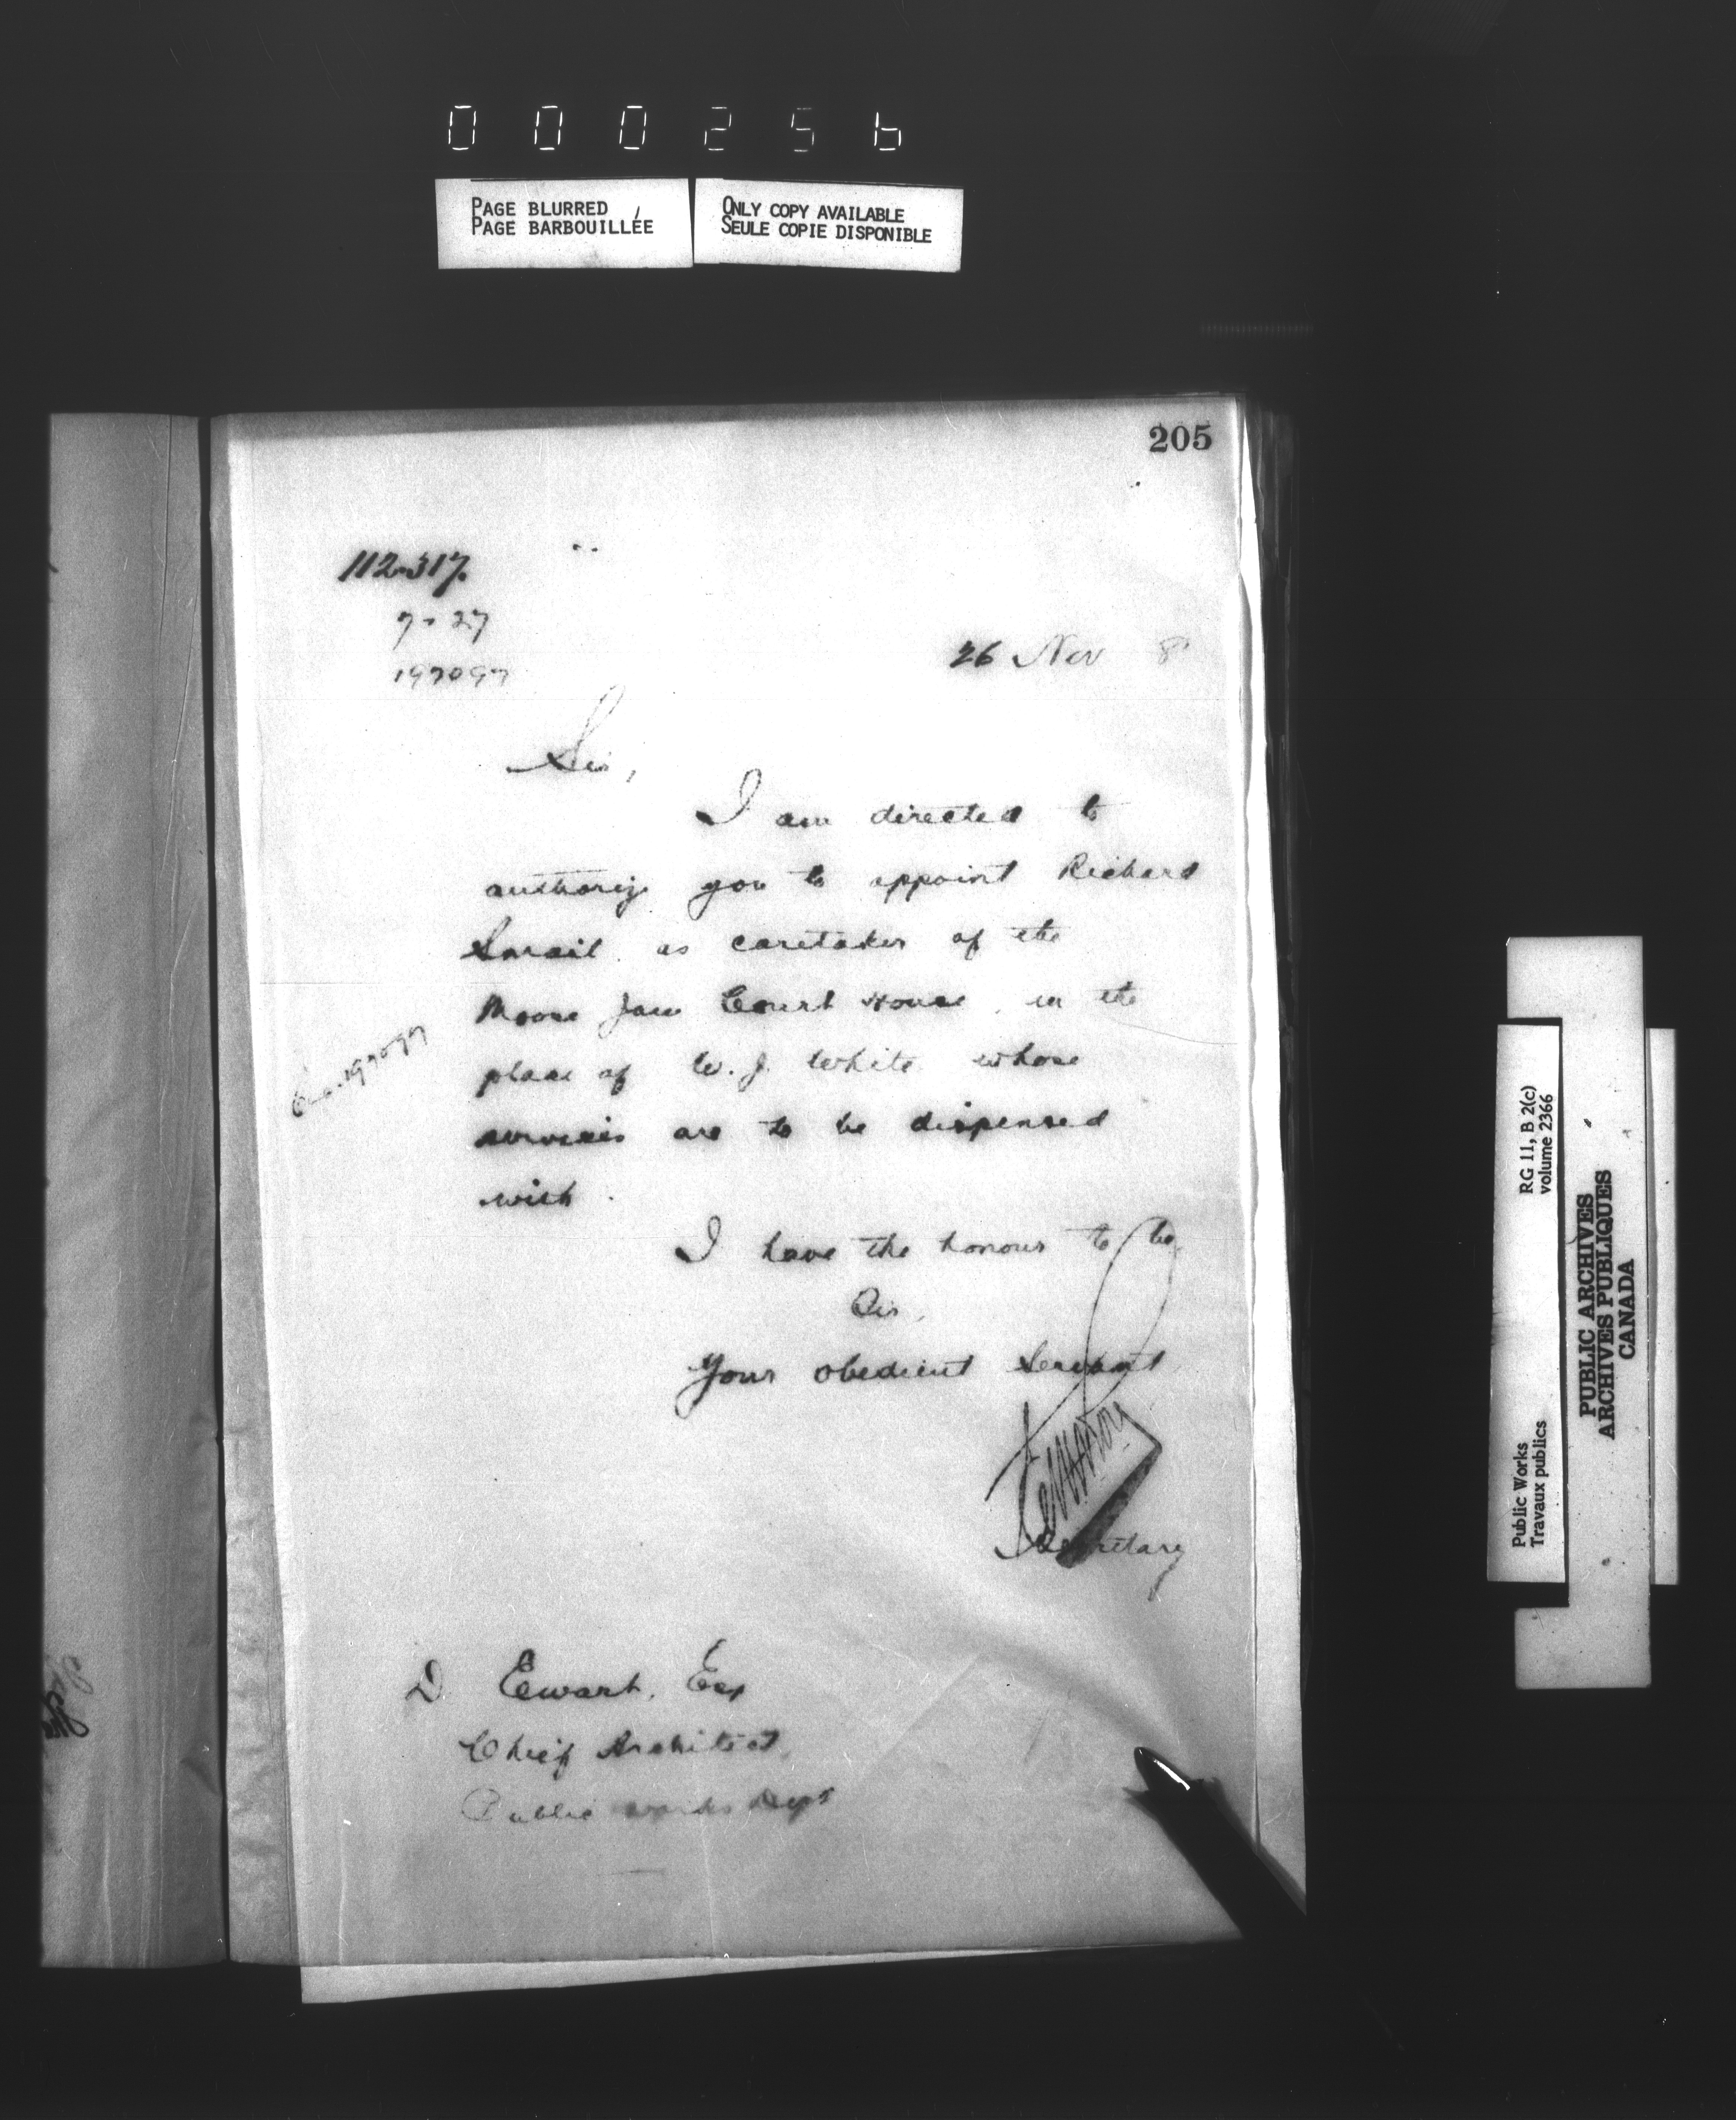 000256
PAGE BLURRED
PAGE BARBOUILLÉE
ONLY COPY AVAILABLE
SEULE COPIE DISPONIBLE
205
112317.
7-27
197097
26 Nov 8
Sir,
I am directed to
authorize you to appoint Richard
Smail as caretaker of the
Moose Jaw Court House, in the
place of W. J. White whose
services are to be dispensed
with.
I have the honour to be
Sir,
Your obedient Servant
Secretary
D Ewart, Esq
Chief Architect
Public Works Dept
RG 11, B 2(c)
volume 2366
Public Works
Travaux publics
PUBLIC ARCHIVES
ARCHIVES PUBLIQUES
CANADA